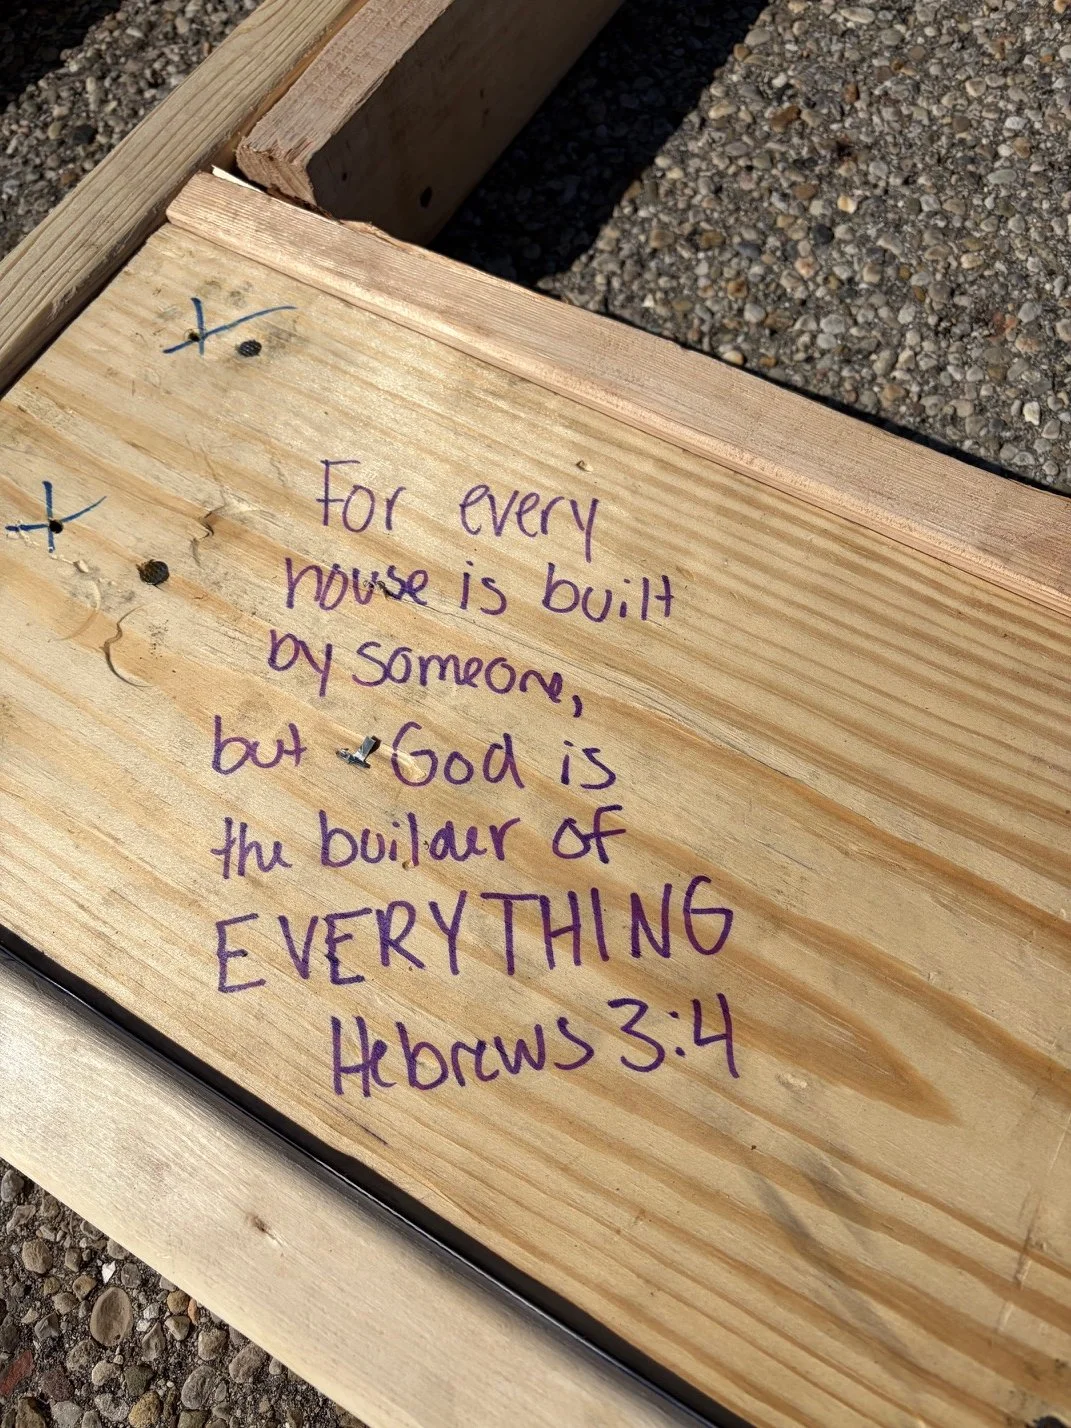 For every
house is built
by someone,
but God is
the builder of
EVERYTHING
Hebrews 3:4